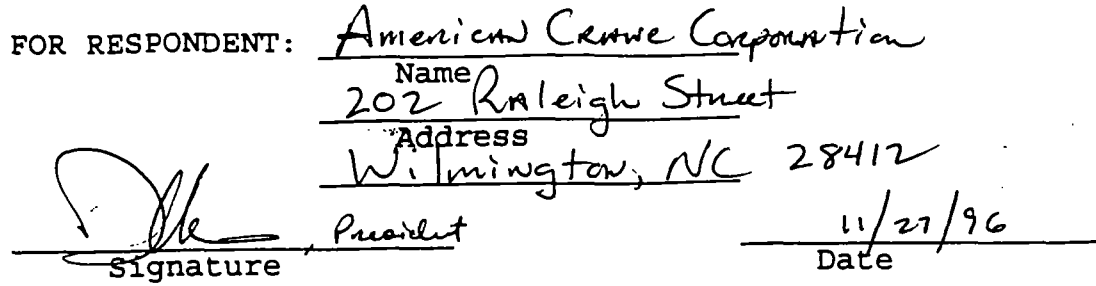 FOR RESPONDENT: American Crane Corporation
Name
202 Raleigh Street
Address
Wilmington, NC 28412
, President 11/27/96
Signature Date